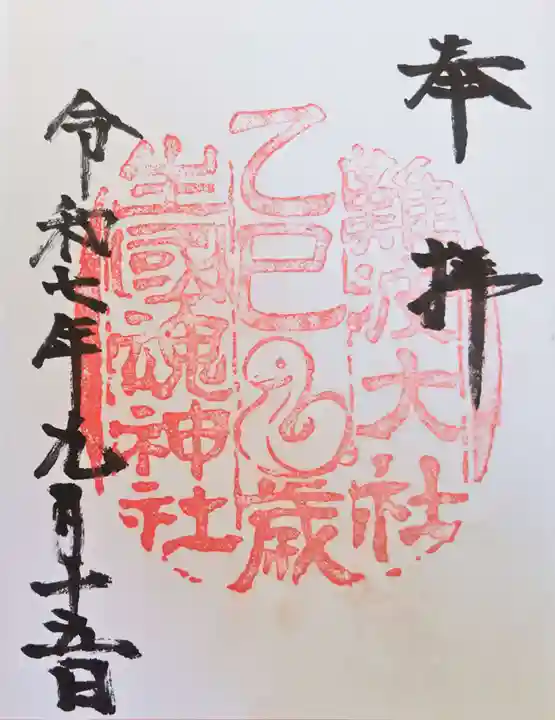 奉拝
難波大社
乙巳歳
生國魂神社
令和七年九月十五日